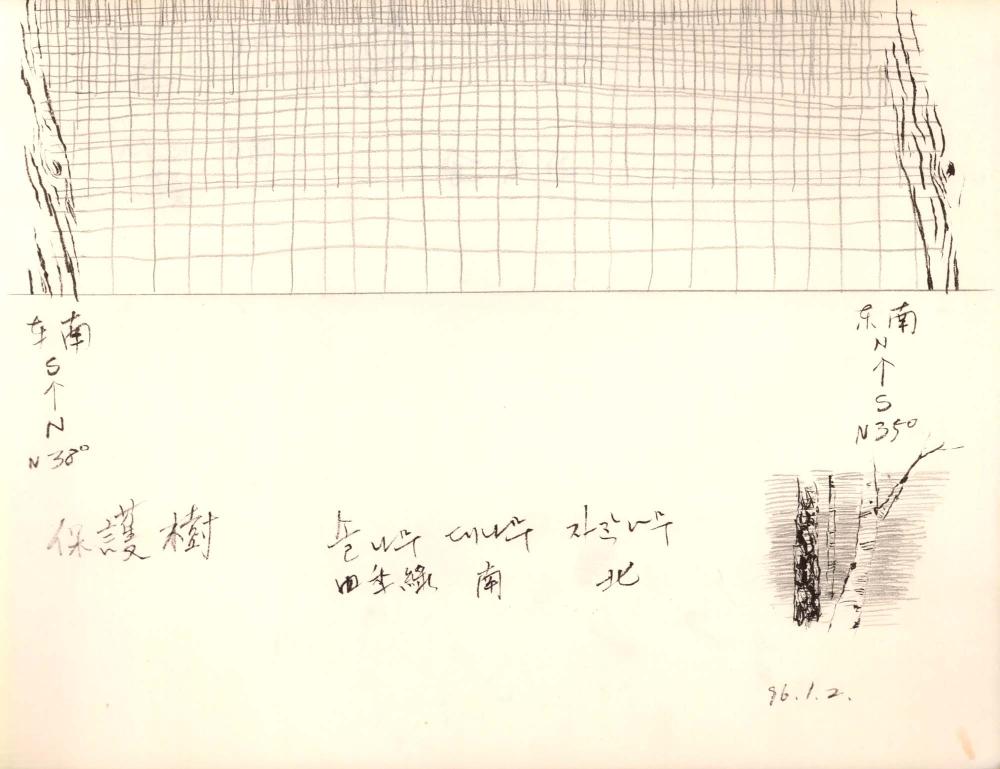 南
S
↑
N
N 38°
东南
N
↑
S
N 35°
保護樹
솔나무 대나무 자작나무
四季綠 南 北
96.1.2.